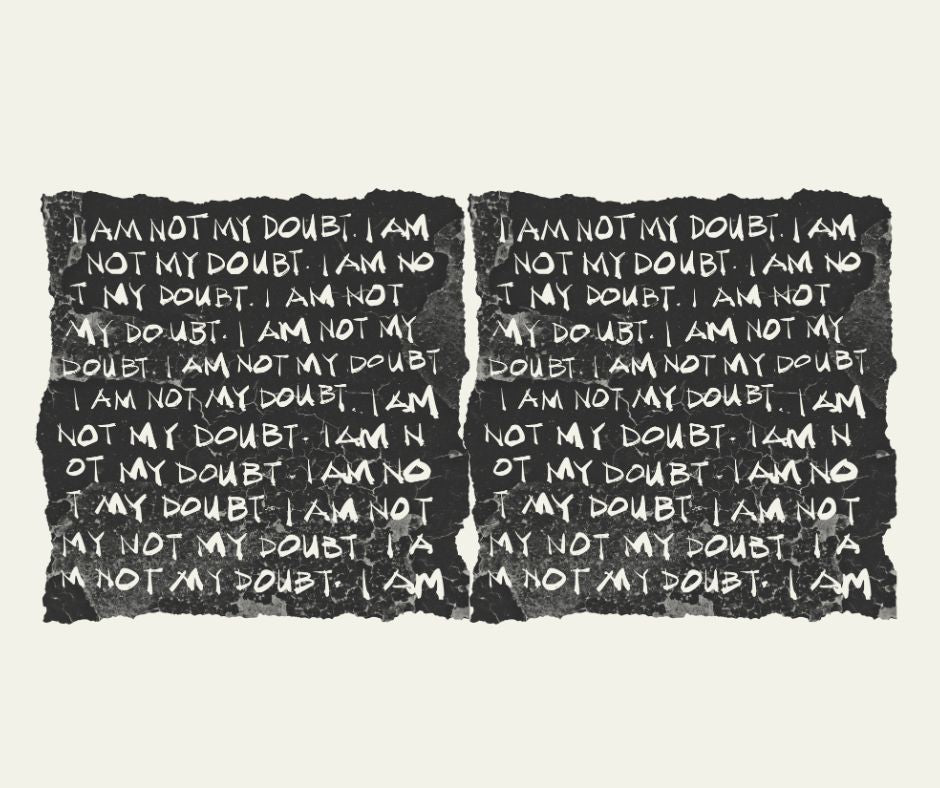 I AM NOT MY DOUBT. I AM
NOT MY DOUBT. I AM NO
T MY DOUBT. I AM NOT
MY DOUBT. I AM NOT MY
DOUBT. I AM NOT MY DOUBT
I AM NOT MY DOUBT. I AM
NOT MY DOUBT. I AM N
OT MY DOUBT. I AM NO
T MY DOUBT. I AM NOT
MY NOT MY DOUBT. I A
M NOT MY DOUBT. I AM
I AM NOT MY DOUBT. I AM
NOT MY DOUBT. I AM NO
T MY DOUBT. I AM NOT
MY DOUBT. I AM NOT MY
DOUBT. I AM NOT MY DOUBT
I AM NOT MY DOUBT. I AM
NOT MY DOUBT. I AM N
OT MY DOUBT. I AM NO
T MY DOUBT. I AM NOT
MY NOT MY DOUBT. I A
M NOT MY DOUBT. I AM